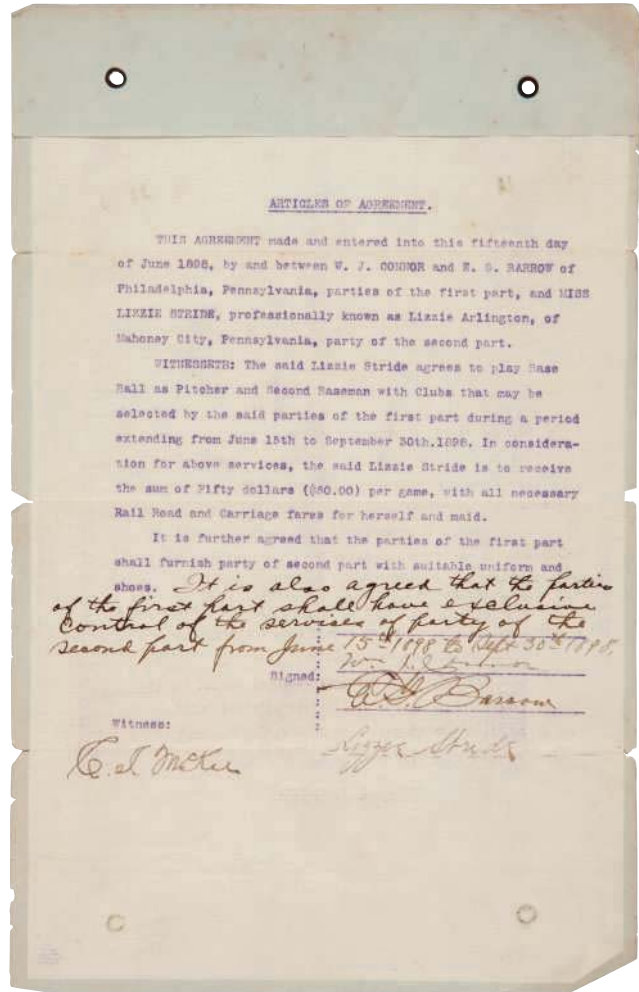 ARTICLES OF AGREEMENT.
THIS AGREEMENT made and entered into this fifteenth day
of June 1898, by and between W. J. CONNOR and E. G. BARROW of
Philadelphia, Pennsylvania, parties of the first part, and MISS
LIZZIE STRIDE, professionally known as Lizzie Arlington, of
Mahoney City, Pennsylvania, party of the second part.
WITNESSETH: The said Lizzie Stride agrees to play Base
Ball as Pitcher and Second Baseman with Clubs that may be
selected by the said parties of the first part during a period
extending from June 15th to September 30th.1898. In considera-
tion for above services, the said Lizzie Stride is to receive
the sum of Fifty dollars ($50.00) per game, with all necessary
Rail Road and Carriage fares for herself and maid.
It is further agreed that the parties of the first part
shall furnish party of second part with suitable uniform and
shoes. It is also agreed that the parties
of the first part shall have exclusive
control of the services of party of the
second part from June 15th 1898 to Sept 30th 1898.
Wm J. Connor
Signed:
E. G. Barrow
Witness:
Lizzie Stride
McKee